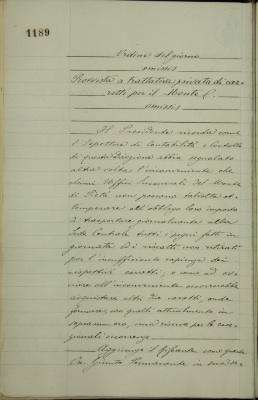 1189
Ordine del giorno
omissis
Provvista a trattativa privata di car-
retti per il Monte C.
omissis
Il Presidente ricorda come
l'Ispettore di Contabilità e Controllo
di questa Direzione abbia segnalato
altra volta l'inconveniente che
alcuni Uffici Succursali del Monte
di Pietà non possano talvolta ot-
temperare all'obbligo loro imposto
di trasportare giornalmente alla
Sede Centrale tutti i pegni fatti in
giornata ed i riscatti non ritirati
per l'insufficiente capienza dei
rispettivi carretti; e come ad ov-
viare all'inconveniente occorrerebbe
acquistare altri tre carretti, onde
formare, con quelli attualmente in
soprannumero, una riserva per le eve-
nienti occorrenze.
Aggiunge il f.f. come questa
On. Giunta Permanente in